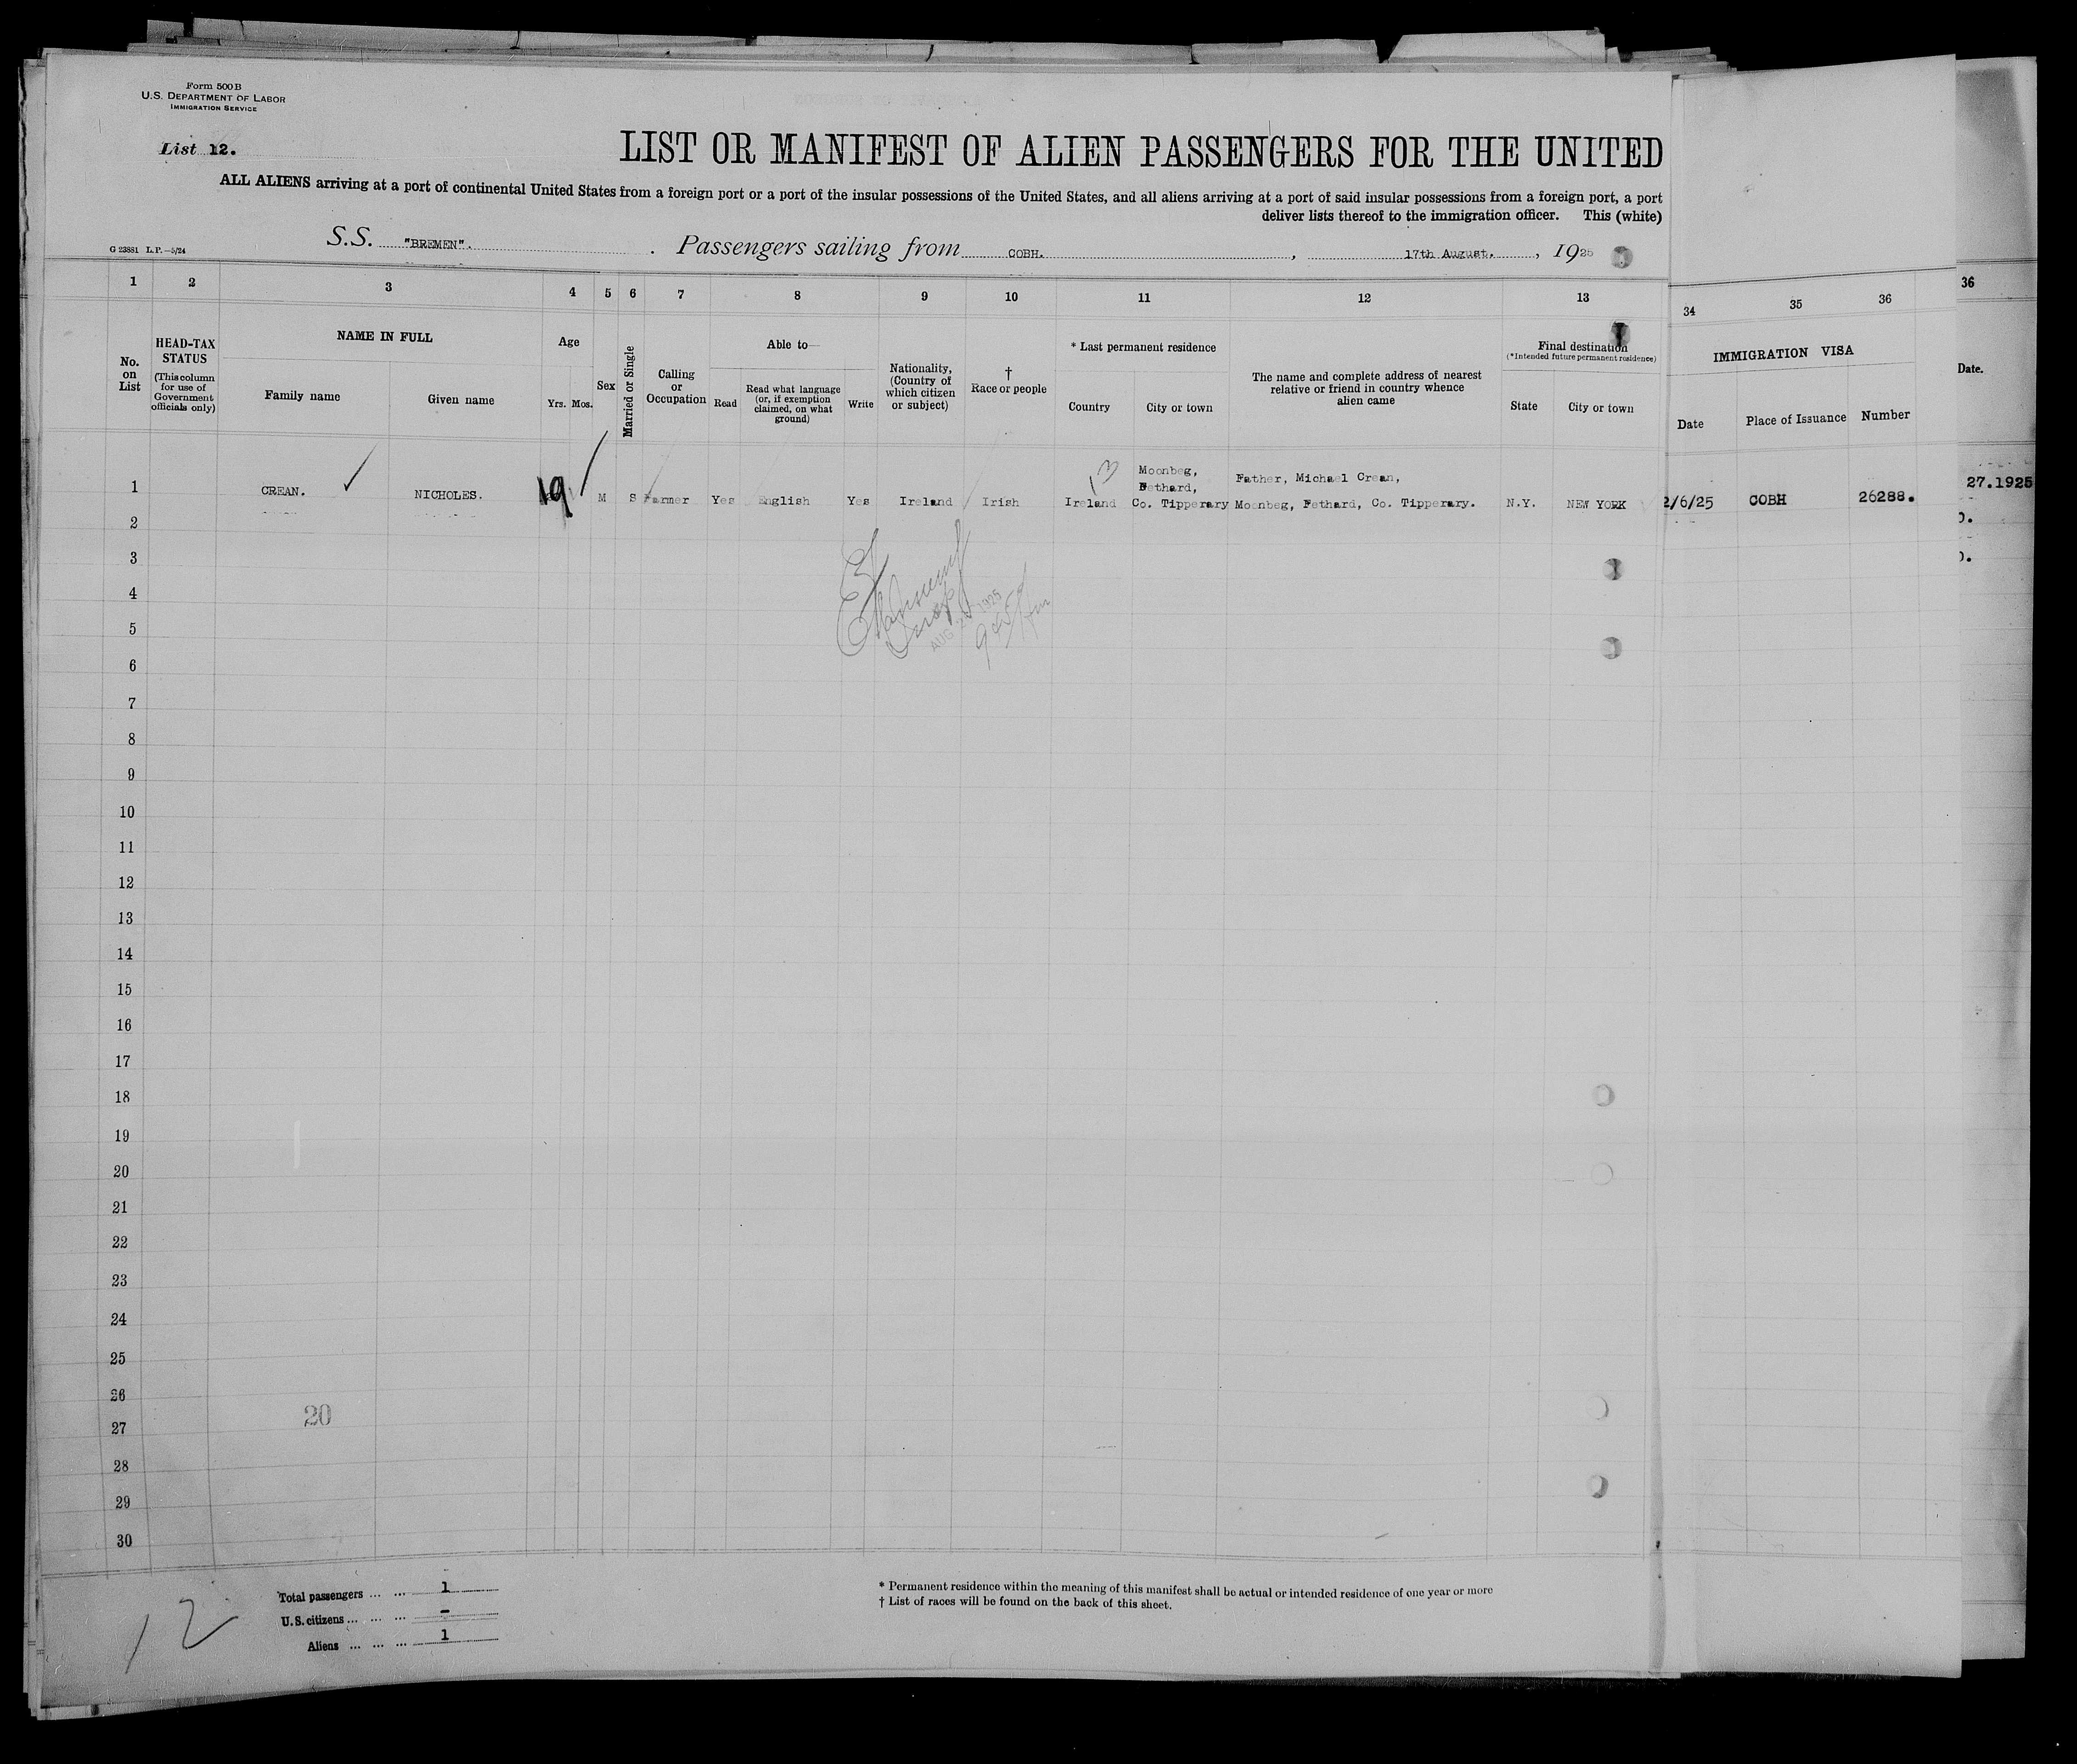 Form 500 B
U.S. DEPARTMENT OF LABOR
IMMIGRATION SERVICE
List 12.
LIST OR MANIFEST OF ALIEN PASSENGERS FOR THE UNITED
ALL ALIENS arriving at a port of continental United States from a foreign port or a port of the insular possessions of the United States, and all aliens arriving at a port of said insular possessions from a foreign port, a port
deliver lists thereof to the immigration officer. This (white)
G 23881 L.P.—5/24
S.S. "BREMEN". Passengers sailing from COBH. , 17th August. , 1925
1 2 3 4 5 6 7 8 9 10 11 12 13
34 35 36
36
No. on List
HEAD-TAX STATUS
(This column for use of Government officials only)
NAME IN FULL
Family name
Given name
Age
Yrs. Mos.
Sex
Married or Single
Calling or Occupation
Able to—
Read
Read what language (or, if exemption claimed, on what ground)
Write
Nationality, (Country of which citizen or subject)
† Race or people
* Last permanent residence
Country
City or town
The name and complete address of nearest relative or friend in country whence alien came
Final destination
(*Intended future permanent residence)
State
City or town
IMMIGRATION VISA
Date
Place of Issuance
Number
Date.
Moonbeg,
Fethard,
Father, Michael Crean,
1 CREAN. NICHOLES. 19 M S Farmer Yes English Yes Ireland Irish Ireland Co. Tipperary Moonbeg, Fethard, Co. Tipperary. N.Y. NEW YORK 2/6/25 COBH 26288.
27.1925
13
2
3
4
5
AUG 1925
6
7
8
9
10
11
12
13
14
15
16
17
18
19
20
21
22
23
24
25
26
20
27
28
29
30
Total passengers ... ... 1
U.S. citizens ... ... ... -
Aliens ... ... ... 1
12
* Permanent residence within the meaning of this manifest shall be actual or intended residence of one year or more
† List of races will be found on the back of this sheet.